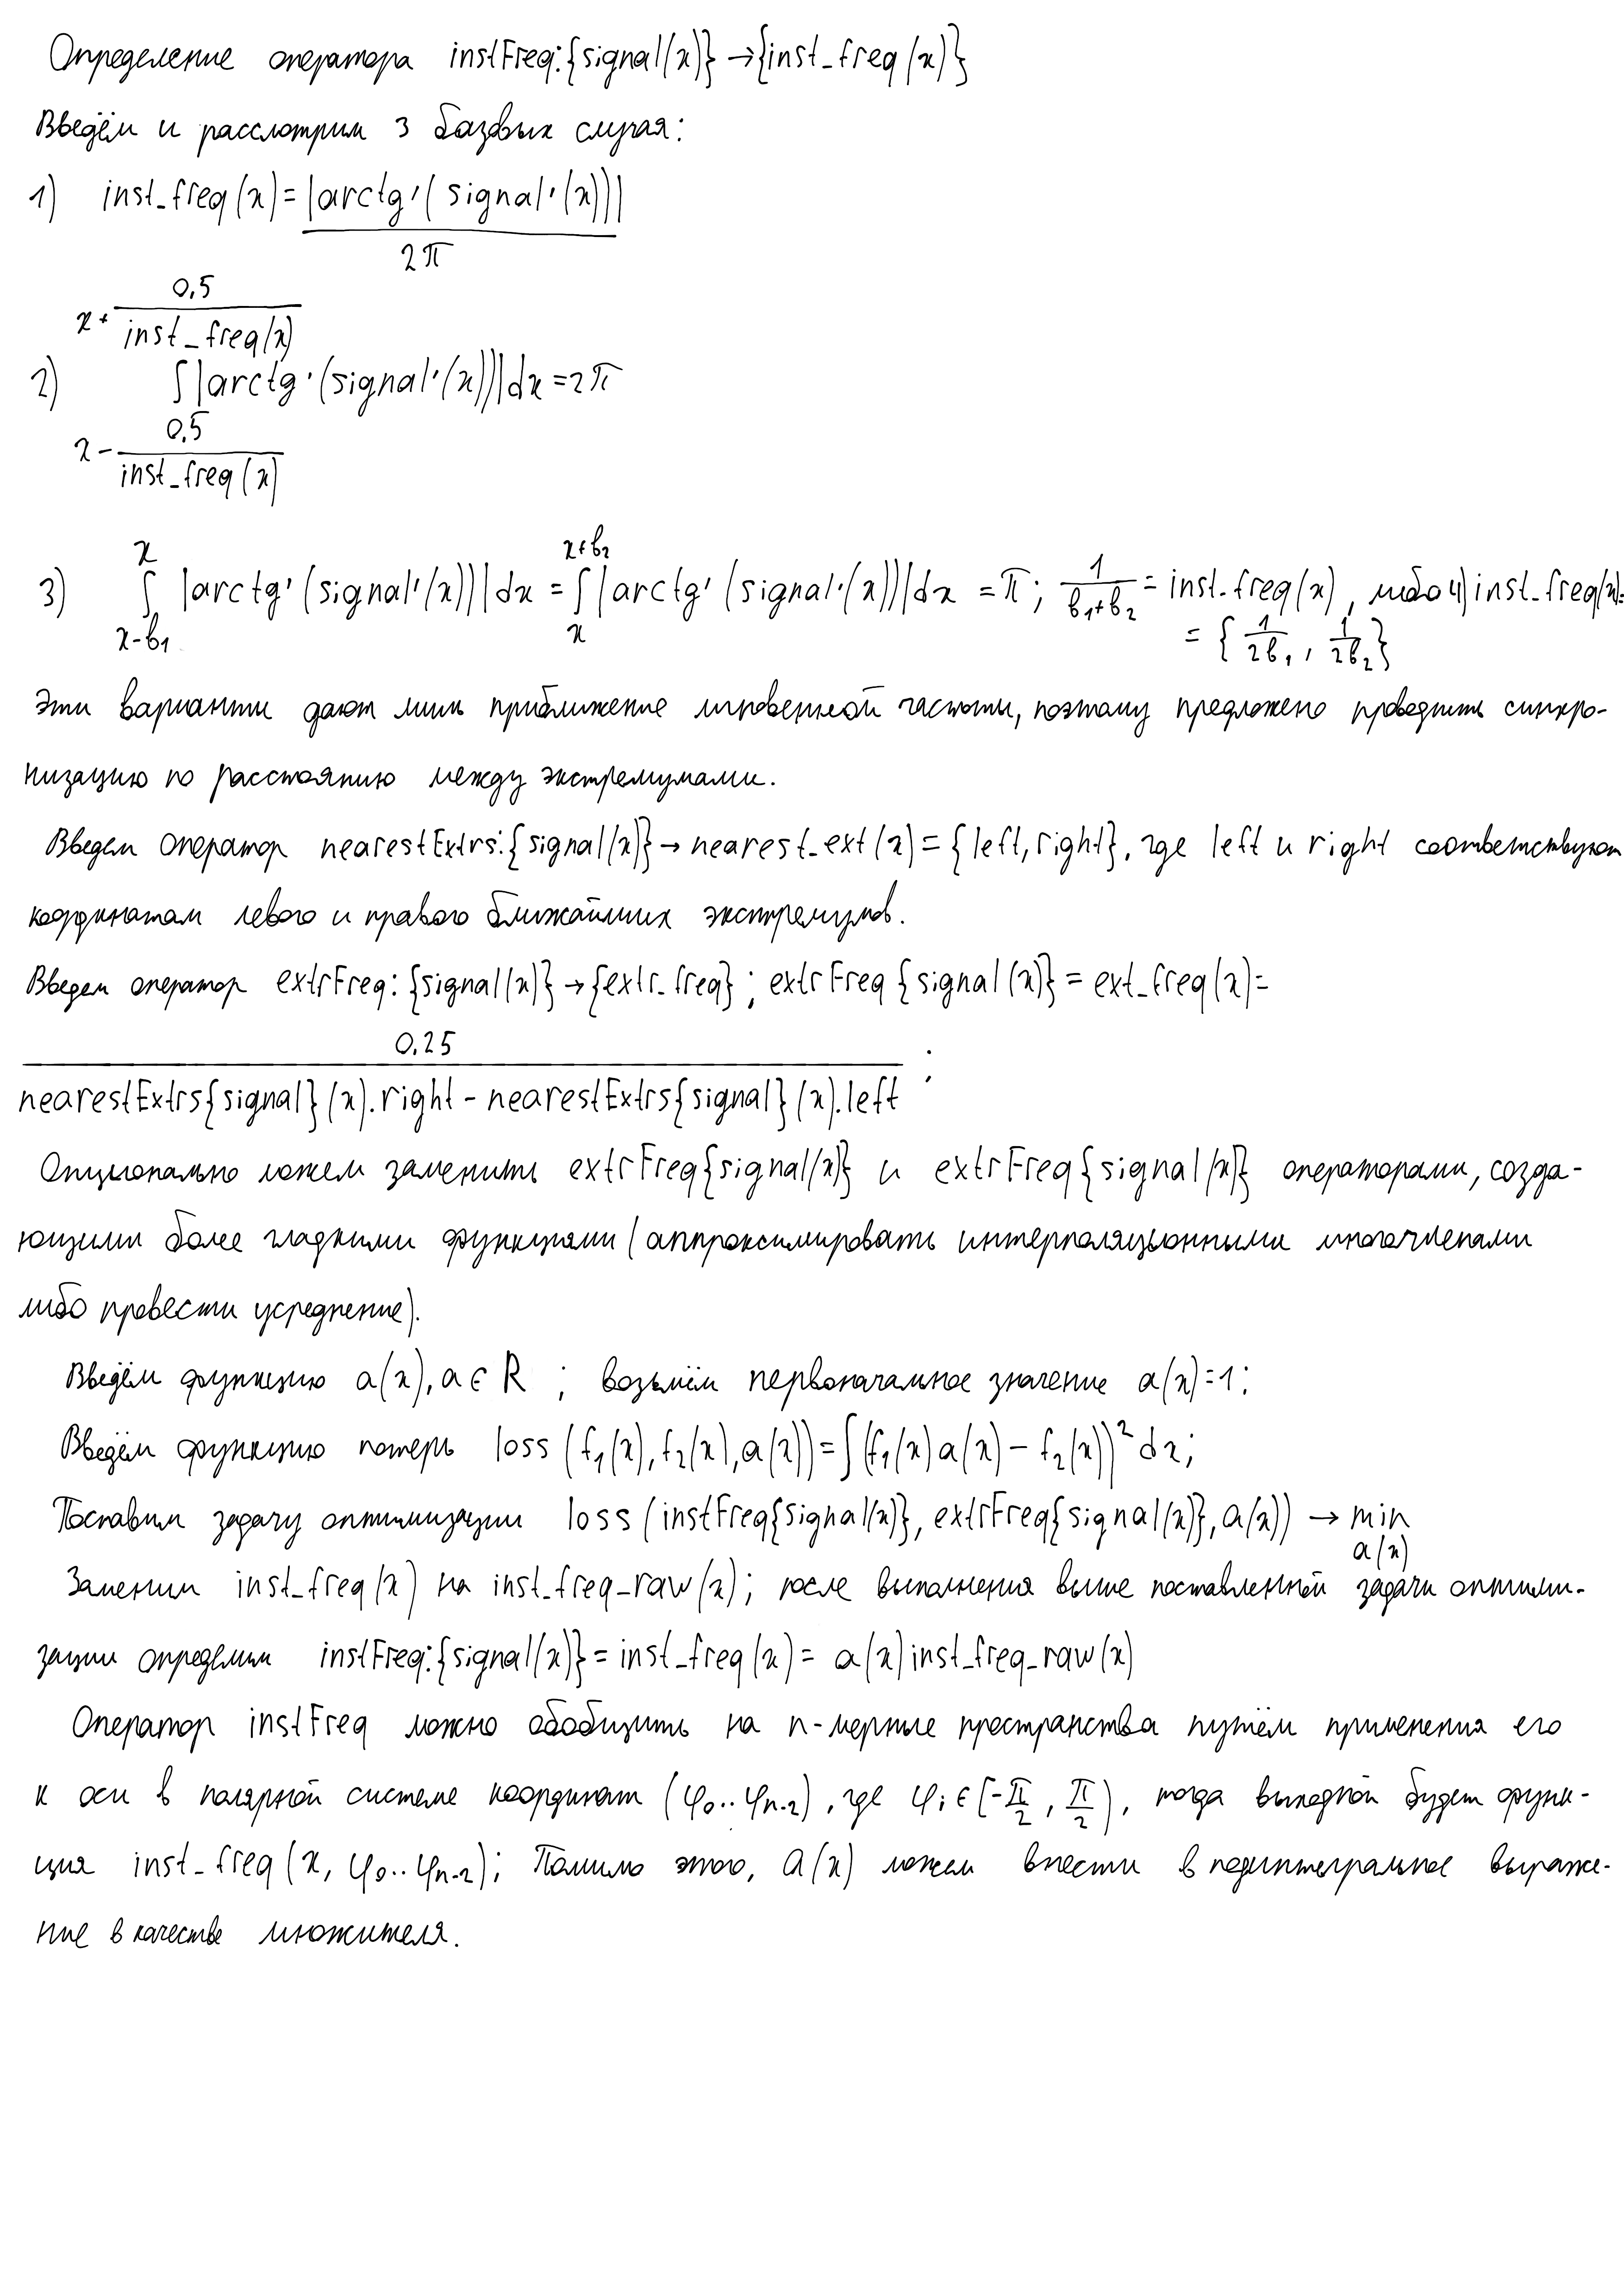 Определение оператора instFreq:{signal(x)}→{inst_freq(x)}
Введём и рассмотрим 3 базвых случая:
1) inst_freq(x)=|arctg'(signal'(x))|
2π
0,5
x+ inst_freq(x)
2) ∫|arctg'(signal'(x))|dx=2π
0,5
x- inst_freq(x)
x x+b₂
3) ∫|arctg'(signal'(x))|dx=∫|arctg'(signal'(x))|dx=π; 1/(b₁+b₂)=inst_freq(x), либо 4) inst_freq(x)=
x-b₁ x ={1/2b₁, 1/2b₂}
Эти варианты дают лишь приближение мгновенной частоты, поэтому предложено проводить синхро-
низацию по расстоянию между экстремумами.
Введем оператор nearestExtrs:{signal(x)}→nearest_ext(x)={left,right}, где left и right соответствуют
координатам левого и правого ближайших экстремумов.
Введем оператор extrFreq:{signal(x)}→{extr_freq}; extrFreq{signal(x)}=ext_freq(x)=
0.25
nearestExtrs{signal}(x).right-nearestExtrs{signal}(x).left ;
Опционально можем заменить extrFreq{signal(x)} и extrFreq{signal(x)} операторами, созда-
ющими более гладкими функциями (аппроксимировать интерполяционными многочленами
либо провести усреднение).
Введём функцию a(x), a∈R; возьмём первоначальное значение a(x)=1;
Введём функцию потерь loss(f₁(x),f₂(x),a(x))=∫(f₁(x)a(x)-f₂(x))²dx;
Поставим задачу оптимизации loss(instFreq{signal(x)}, extrFreq{signal(x)}, a(x))→min
a(x)
Заменим inst_freq(x) на inst_freq_raw(x); после выполнения выше поставленной задачи оптими-
зации определим instFreq:{signal(x)}=inst_freq(x)=a(x)inst_freq_raw(x)
Оператор instFreq можно обобщить на n-мерные пространства путём применения его
к оси в полярной системе координат (φ₀..φₙ₋₂), где φᵢ∈(-π/2, π/2), тогда выходной будет функ-
ция inst_freq(x, φ₀..φₙ₋₂); Помимо этого, a(x) можем внести в подинтегральное выраже-
ние в качестве множителя.